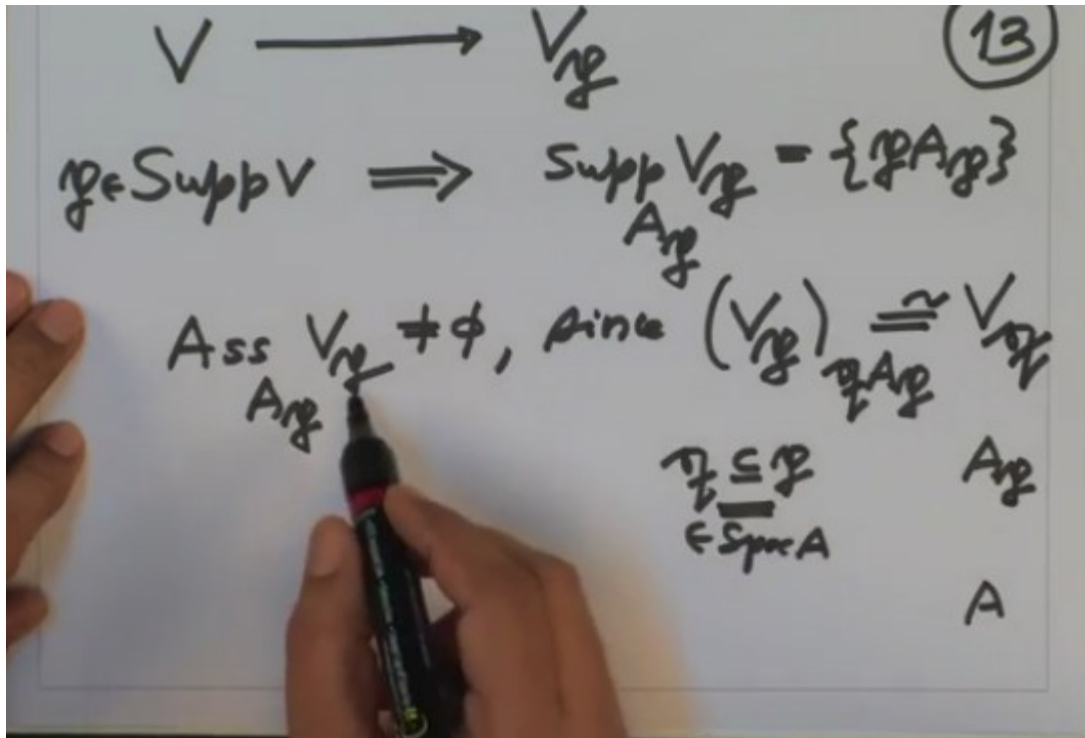 V ⟶ V_𝔭 13
𝔭∈Supp V ⟹ Supp_{A_𝔭} V_𝔭 = {𝔭A_𝔭}
Ass_{A_𝔭} V_𝔭 ≠ ϕ, since (V_𝔭)_{𝔮A_𝔭} ≅ V_𝔮
𝔮 ⊆ 𝔭 A_𝔭
∈ Spec A
A